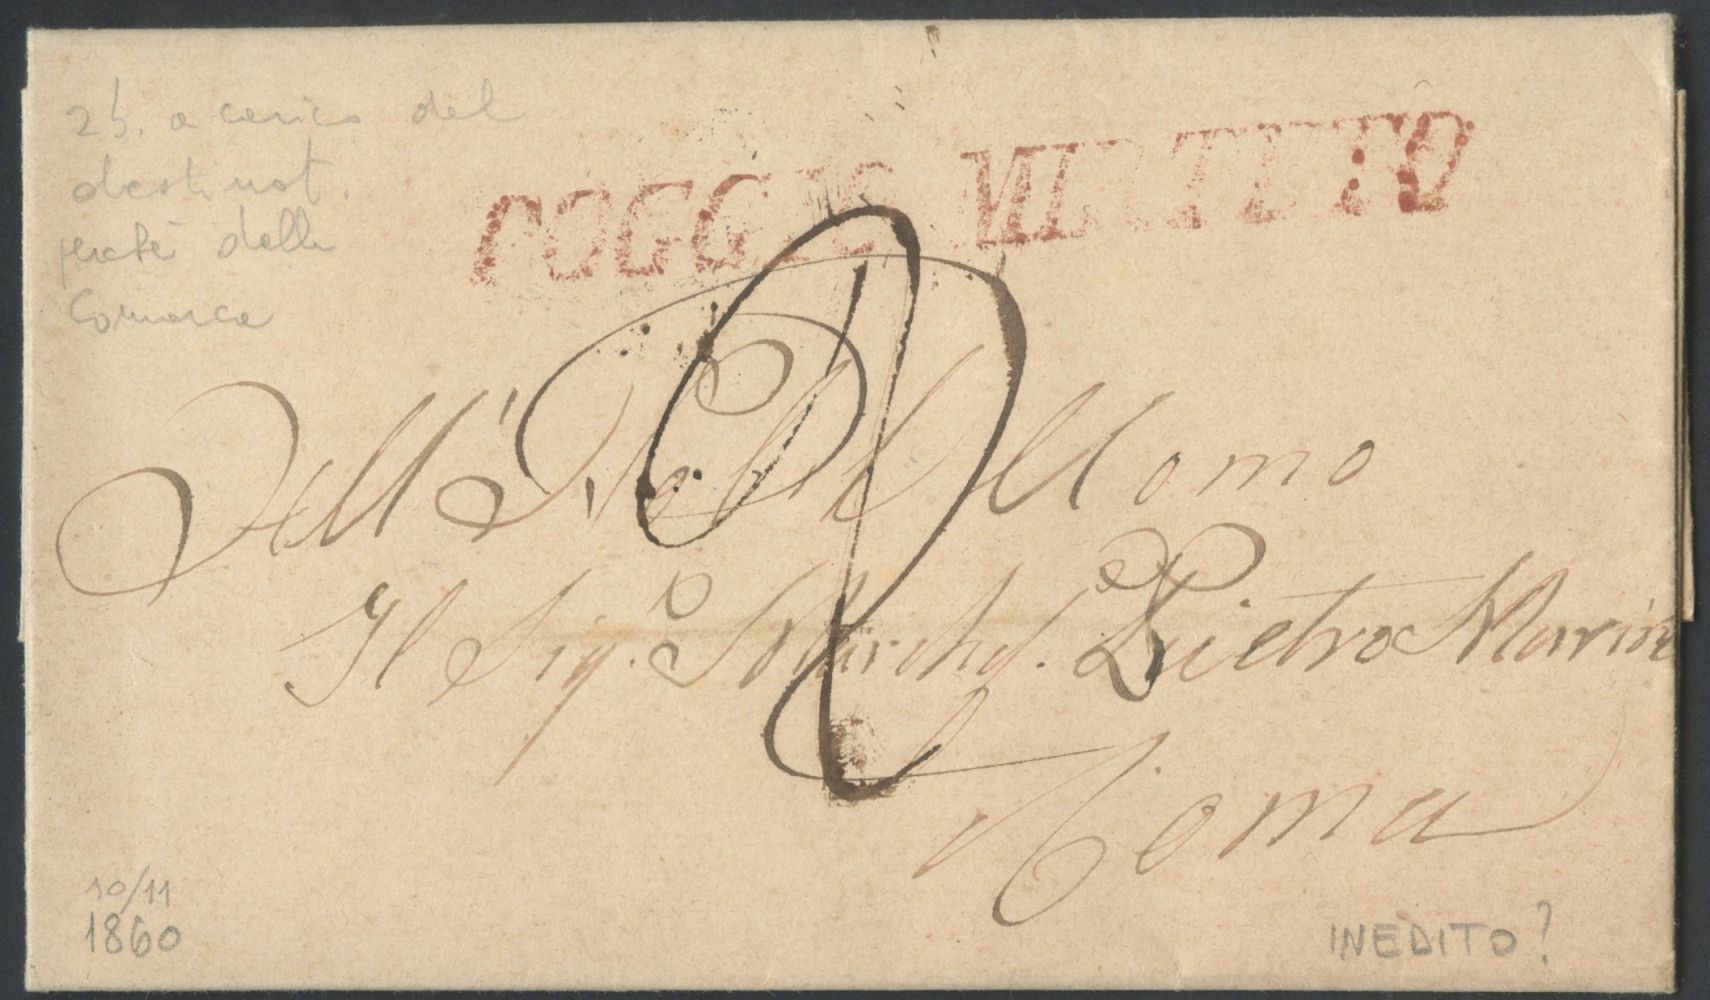 2b. a carico del
destinat.
perché della
Comarca
POGGIO MIRTETO
2
All' Nob[il] Uomo
Il Sig.e March. Pietro Marini
Roma
10/11
1860
INEDITO?